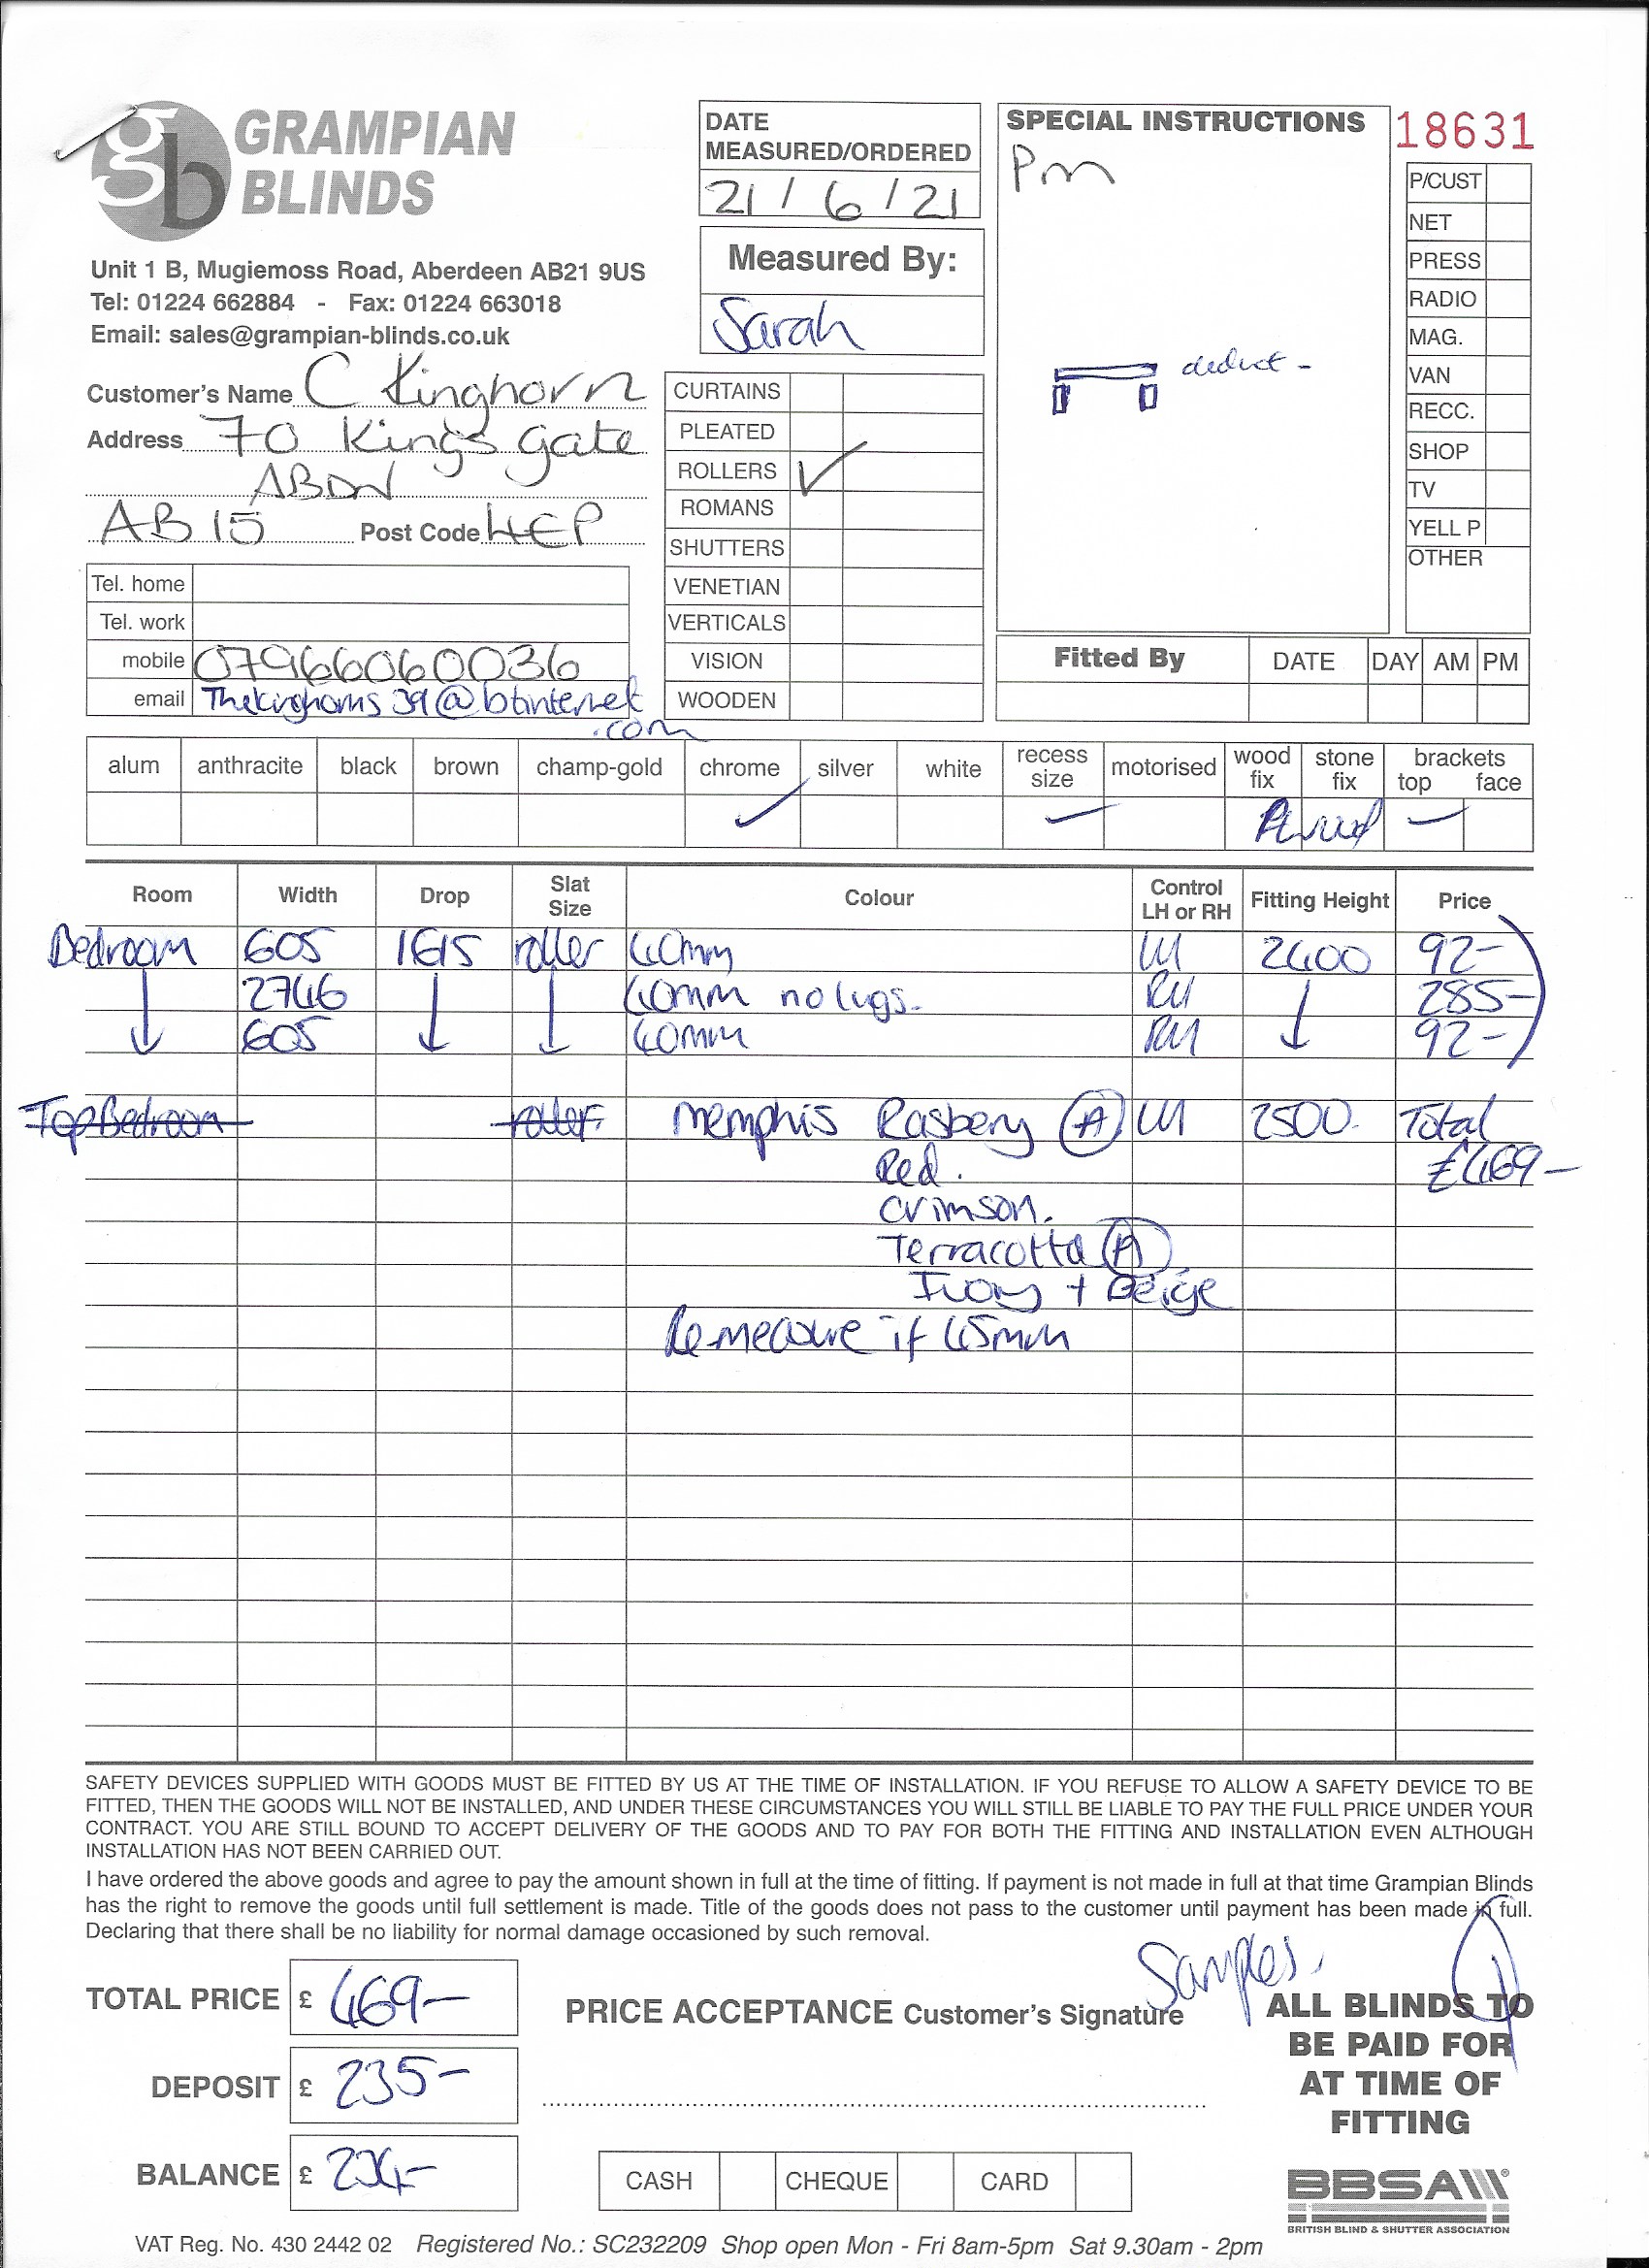 gb GRAMPIAN BLINDS
Unit 1 B, Mugiemoss Road, Aberdeen AB21 9US
Tel: 01224 662884 - Fax: 01224 663018
Email: sales@grampian-blinds.co.uk
DATE MEASURED/ORDERED
21/6/21
Measured By:
Sarah
SPECIAL INSTRUCTIONS
Pm
deduct -
18631
P/CUST
NET
PRESS
RADIO
MAG.
VAN
RECC.
SHOP
TV
YELL P
OTHER
Customer's Name C Kinghorn
Address 70 Kings Gate
ABDN
AB15 Post Code 4EP
Tel. home
Tel. work
mobile 07966060036
email Thekinghorns39@btinternet
.com
CURTAINS
PLEATED
ROLLERS ✓
ROMANS
SHUTTERS
VENETIAN
VERTICALS
VISION
WOODEN
Fitted By DATE DAY AM PM
alum anthracite black brown champ-gold chrome silver white recess size motorised wood fix stone fix brackets top face
✓ ✓ ✓
Room Width Drop Slat Size Colour Control LH or RH Fitting Height Price
Bedroom 605 1615 roller 40mm LH 2400 92-
2746 40mm no lugs. RH 285-
605 40mm RH 92-
Top Bedroom roller memphis Rasbery (A) LH 2500 Total
Red. £469-
Crimson.
Terracotta (A)
Ivory + Beige
Re-measure if 45mm
SAFETY DEVICES SUPPLIED WITH GOODS MUST BE FITTED BY US AT THE TIME OF INSTALLATION. IF YOU REFUSE TO ALLOW A SAFETY DEVICE TO BE
FITTED, THEN THE GOODS WILL NOT BE INSTALLED, AND UNDER THESE CIRCUMSTANCES YOU WILL STILL BE LIABLE TO PAY THE FULL PRICE UNDER YOUR
CONTRACT. YOU ARE STILL BOUND TO ACCEPT DELIVERY OF THE GOODS AND TO PAY FOR BOTH THE FITTING AND INSTALLATION EVEN ALTHOUGH
INSTALLATION HAS NOT BEEN CARRIED OUT.
I have ordered the above goods and agree to pay the amount shown in full at the time of fitting. If payment is not made in full at that time Grampian Blinds
has the right to remove the goods until full settlement is made. Title of the goods does not pass to the customer until payment has been made in full.
Declaring that there shall be no liability for normal damage occasioned by such removal.
TOTAL PRICE £ 469-
DEPOSIT £ 235-
BALANCE £ 234-
PRICE ACCEPTANCE Customer's Signature
Samples.
ALL BLINDS TO
BE PAID FOR
AT TIME OF
FITTING
CASH CHEQUE CARD
BBSA
BRITISH BLIND & SHUTTER ASSOCIATION
VAT Reg. No. 430 2442 02 Registered No.: SC232209 Shop open Mon - Fri 8am-5pm Sat 9.30am - 2pm